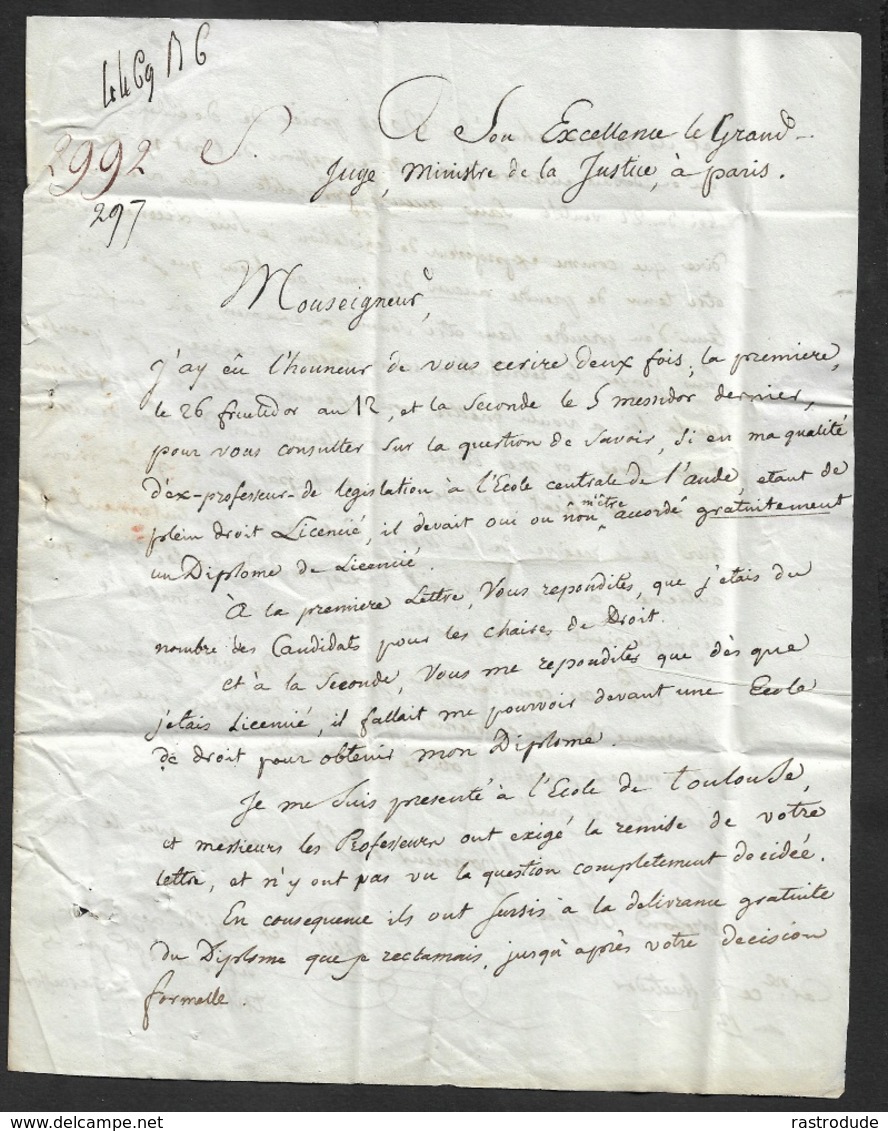 4469 B C
2992 S.
297
A Son Excellence le Grand
Juge, Ministre de la Justice, à paris.
Monseigneur,
j'ay eû l'honneur de vous ecrire deux fois, la premiere,
le 26 fructidor an 12, et la seconde le 5 messidor dernier,
pour vous consulter sur la question de savoir, si en ma qualité
d'ex-professeur de legislation à l'Ecole centrale de l'aude, etant de
plein droit Licencié, il devait oui ou non m'etre accordé gratuitement
un Diplome de Licencié.
À la premiere Lettre, Vous repondites, que j'etais du
nombre des Candidats pour les chaires de Droit.
et à la Seconde, Vous me repondites que dès que
j'etais Licencié, il fallait me pourvoir devant une Ecole
de droit pour obtenir mon Diplome.
Je me suis presenté à l'Ecole de Toulouse,
et messieurs les Professeurs ont exigé la remise de votre
lettre, et n'y ont pas vu la question completement decidée.
En consequence ils ont sursis à la delivrance gratuite
du Diplome que je reclamais, jusqu'après votre decision
formelle.
www.delcampe.net
rastrodude